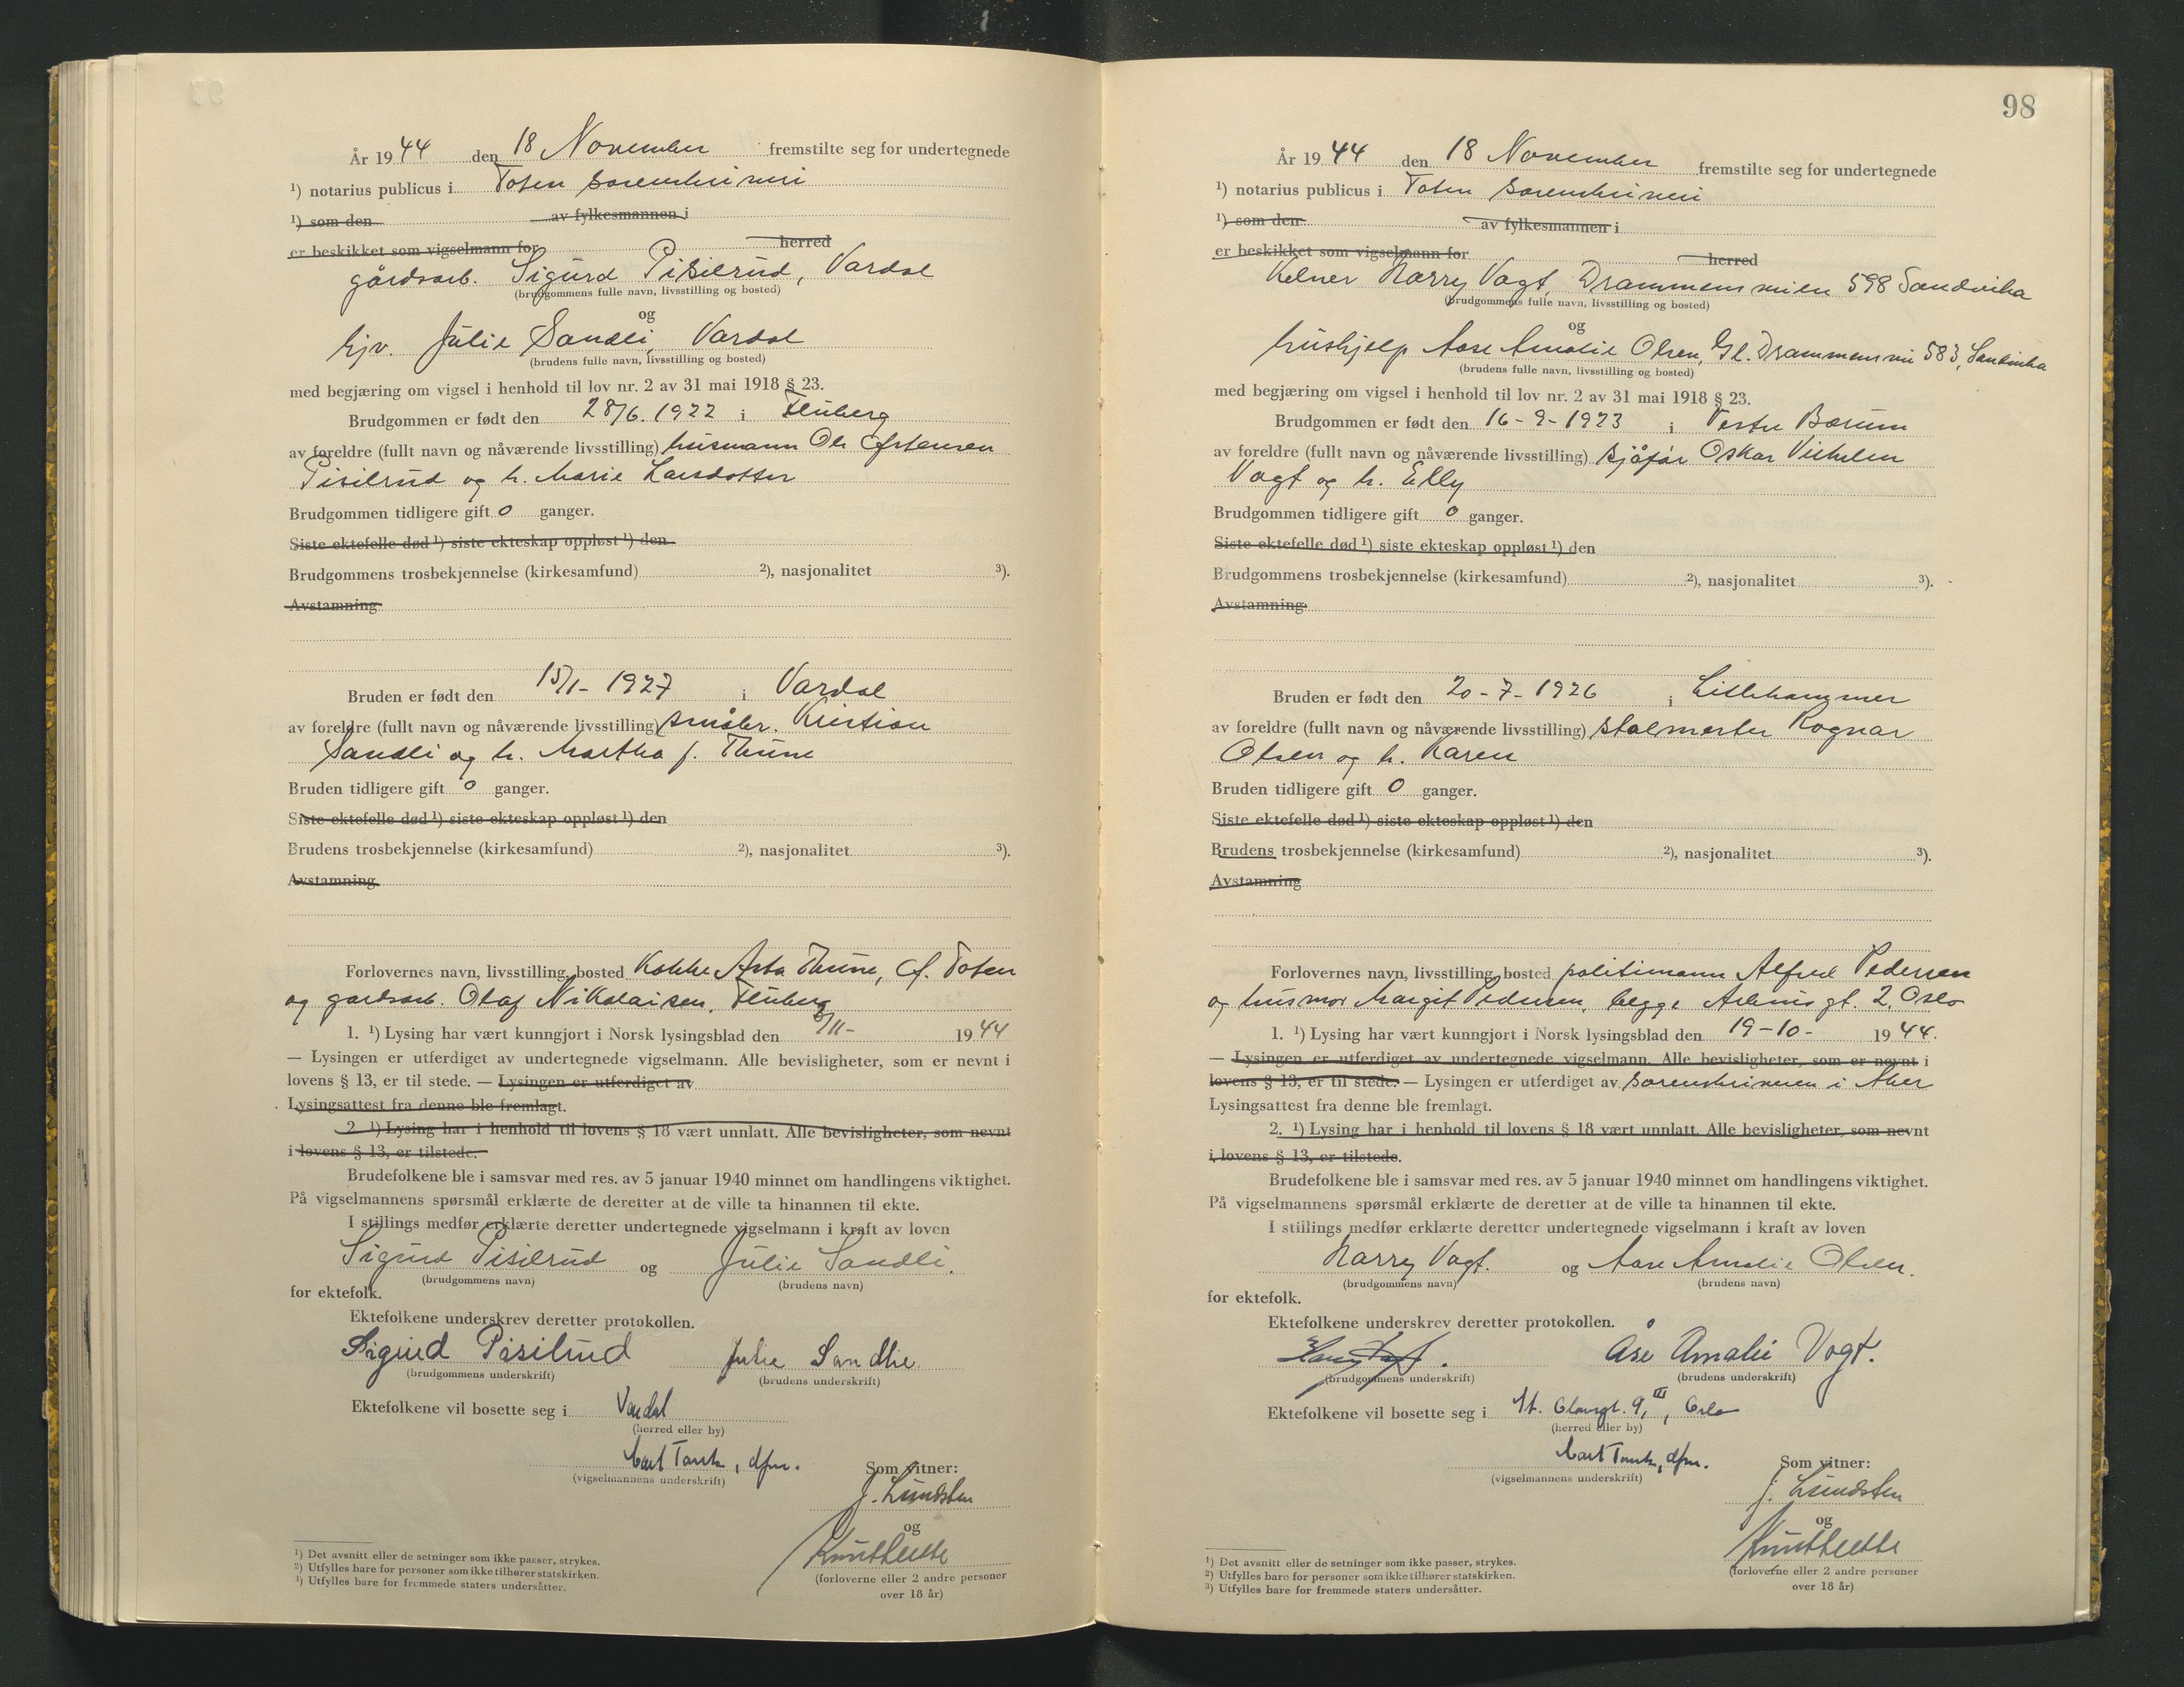 År 19 44 den 18 November fremstilte seg for undertegnede
¹) notarius publicus i Toten sorenskriveri
¹) som den av fylkesmannen i
er beskikket som vigselmann for herred
gårdsarb. Sigurd Pisilrud, Vardal
(brudgommens fulle navn, livsstilling og bosted)
og
hjv. Julie Sandli, Vardal
(brudens fulle navn, livsstilling og bosted)
med begjæring om vigsel i henhold til lov nr. 2 av 31 mai 1918 § 23.
Brudgommen er født den 28/6. 1922 i Fluberg
av foreldre (fullt navn og nåværende livsstilling) husmann Ole
Pisilrud og h. Marie Larsdotter
Brudgommen tidligere gift 0 ganger.
Siste ektefelle død ¹) siste ekteskap oppløst ¹) den
Brudgommens trosbekjennelse (kirkesamfund) ²), nasjonalitet ³).
Avstamning
Bruden er født den 15/1- 1927 i Vardal
av foreldre (fullt navn og nåværende livsstilling) småbr. Kristian
Sandli og h. Martha f. Thune
Bruden tidligere gift 0 ganger.
Siste ektefelle død ¹) siste ekteskap oppløst ¹) den
Brudens trosbekjennelse (kirkesamfund) ²), nasjonalitet ³).
Avstamning
Forlovernes navn, livsstilling, bosted Kokke Asta Thune, Ø. Toten
og gardsarb. Olaf Nikolaisen, Fluberg
1. ¹) Lysing har vært kunngjort i Norsk lysingsblad den /11- 19 44
— Lysingen er utferdiget av undertegnede vigselmann. Alle bevisligheter, som er nevnt i
lovens § 13, er til stede. — Lysingen er utferdiget av
Lysingsattest fra denne ble fremlagt.
2 ¹) Lysing har i henhold til lovens § 18 vært unnlatt. Alle bevisligheter, som nevnt
i lovens § 13, er tilstede.
Brudefolkene ble i samsvar med res. av 5 januar 1940 minnet om handlingens viktighet.
På vigselmannens spørsmål erklærte de deretter at de ville ta hinannen til ekte.
I stillings medfør erklærte deretter undertegnede vigselmann i kraft av loven
Sigurd Pisilrud og Julie Sandli.
(brudgommens navn) (brudens navn)
for ektefolk.
Ektefolkene underskrev deretter protokollen.
Sigurd Pisilrud Julie Sandlie
(brudgommens underskrift) (brudens underskrift)
Ektefolkene vil bosette seg i Vardal
(herred eller by)
Carl Tank, dfm.
(vigselmannens underskrift)
Som vitner:
J. Lundsten
og
(forloverne eller 2 andre personer
over 18 år)
¹) Det avsnitt eller de setninger som ikke passer, strykes.
²) Utfylles bare for personer som ikke tilhører statskirken.
³) Utfylles bare for fremmede staters undersåtter.
98
År 19 44 den 18 November fremstilte seg for undertegnede
¹) notarius publicus i Toten sorenskriveri
¹) som den av fylkesmannen i
er beskikket som vigselmann for herred
Kelner Harry Vogt, Drammensveien 598 Sandvika
(brudgommens fulle navn, livsstilling og bosted)
og
hushjelp Aase Amalie Olsen, Gl. Drammensvei 583, Sandvika
(brudens fulle navn, livsstilling og bosted)
med begjæring om vigsel i henhold til lov nr. 2 av 31 mai 1918 § 23.
Brudgommen er født den 16-9-1923 i Vestre Bærum
av foreldre (fullt navn og nåværende livsstilling) sjåfør Oskar Vilhelm
Vogt og h. Elly
Brudgommen tidligere gift 0 ganger.
Siste ektefelle død ¹) siste ekteskap oppløst ¹) den
Brudgommens trosbekjennelse (kirkesamfund) ²), nasjonalitet ³).
Avstamning
Bruden er født den 20-7-1926 i Lillehammer
av foreldre (fullt navn og nåværende livsstilling) stalmester Ragnar
Olsen og h. Karen
Bruden tidligere gift 0 ganger.
Siste ektefelle død ¹) siste ekteskap oppløst ¹) den
Brudens trosbekjennelse (kirkesamfund) ²), nasjonalitet ³).
Avstamning
Forlovernes navn, livsstilling, bosted politimann Alfred Pedersen
og husmor Margit Pedersen, begge gt. 2, Oslo
1. ¹) Lysing har vært kunngjort i Norsk lysingsblad den 19-10- 19 44.
— Lysingen er utferdiget av undertegnede vigselmann. Alle bevisligheter, som er nevnt i
lovens § 13, er til stede. — Lysingen er utferdiget av sorenskriveren i Aker
Lysingsattest fra denne ble fremlagt.
2. ¹) Lysing har i henhold til lovens § 18 vært unnlatt. Alle bevisligheter, som nevnt
i lovens § 13, er tilstede.
Brudefolkene ble i samsvar med res. av 5 januar 1940 minnet om handlingens viktighet.
På vigselmannens spørsmål erklærte de deretter at de ville ta hinannen til ekte.
I stillings medfør erklærte deretter undertegnede vigselmann i kraft av loven
Harry Vogt. og Aase Amalie Olsen.
(brudgommens navn) (brudens navn)
for ektefolk.
Ektefolkene underskrev deretter protokollen.
Harry Vogt. Åse Amalie Vogt.
(brudgommens underskrift) (brudens underskrift)
Ektefolkene vil bosette seg i St. Olavsgt. 9, III, Oslo
(herred eller by)
Carl Tank, dfm.
(vigselmannens underskrift)
Som vitner:
J. Lundsten
og
(forloverne eller 2 andre personer
over 18 år)
¹) Det avsnitt eller de setninger som ikke passer, strykes.
²) Utfylles bare for personer som ikke tilhører statskirken.
³) Utfylles bare for fremmede staters undersåtter.